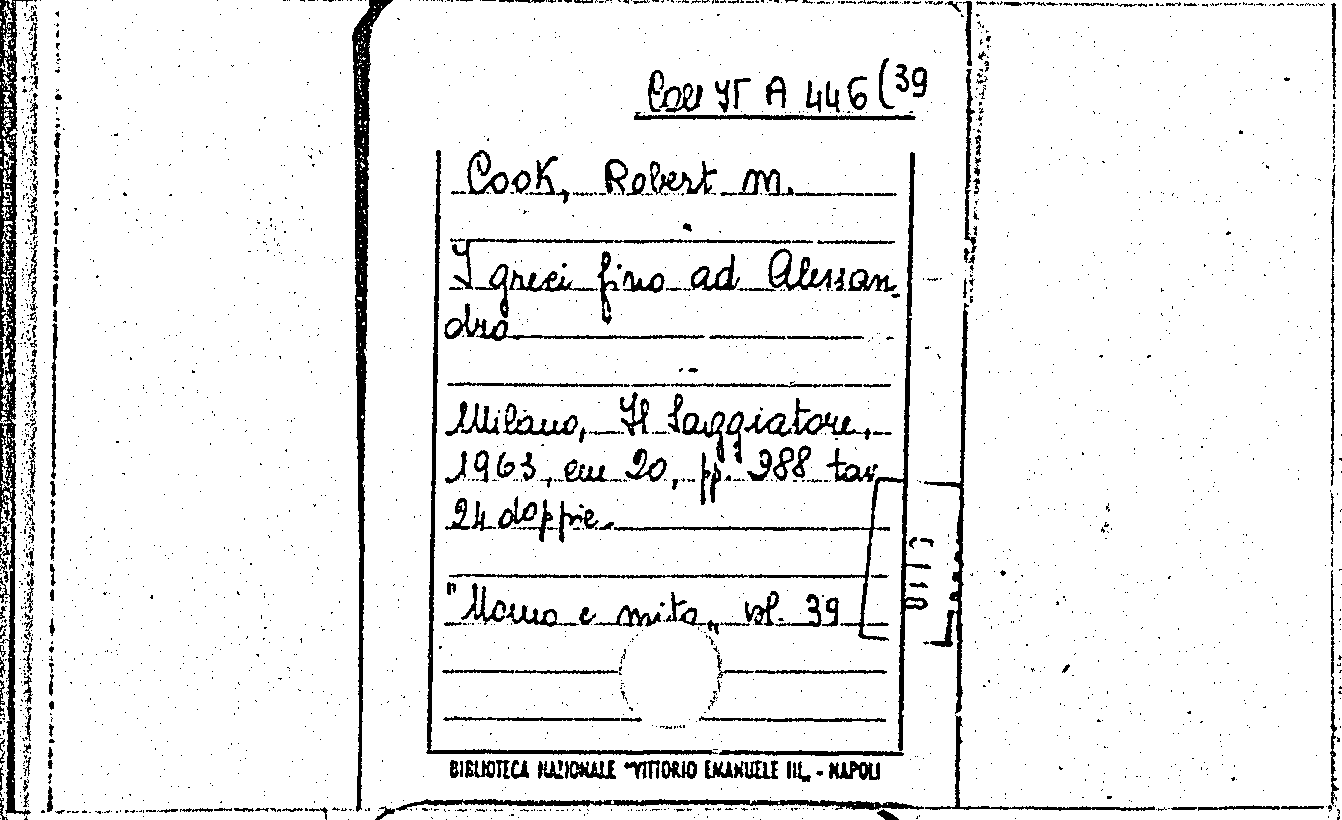 Coll It A 446 (39
Cook, Robert M.
I greci fino ad Alessan-
dro
Milano, Il Saggiatore,
1963, cm 20, pp. 288 tav
24 doppie.
"Uomo e mito„ vol. 39
BIBLIOTECA NAZIONALE "VITTORIO EMANUELE III„ - NAPOLI